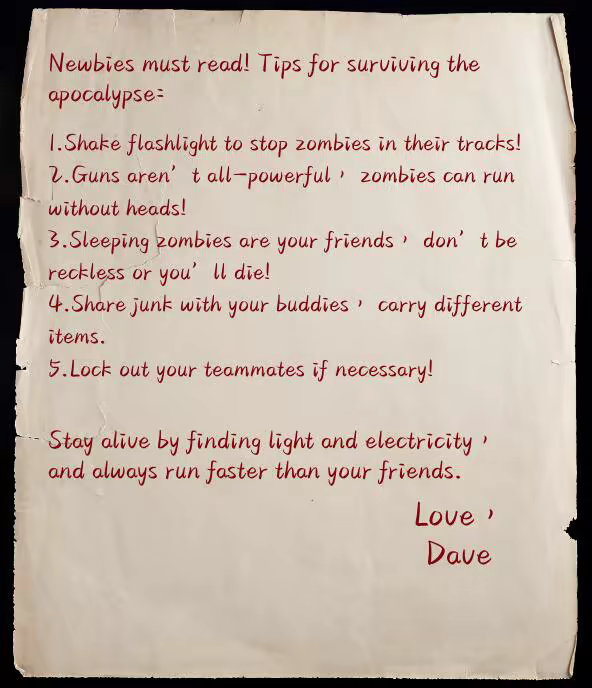 Newbies must read! Tips for surviving the
apocalypse:
1.Shake flashlight to stop zombies in their tracks!
2.Guns aren’ t all-powerful , zombies can run
without heads!
3.Sleeping zombies are your friends , don’ t be
reckless or you’ ll die!
4.Share junk with your buddies , carry different
items.
5.Lock out your teammates if necessary!
Stay alive by finding light and electricity ,
and always run faster than your friends.
Love ,
Dave